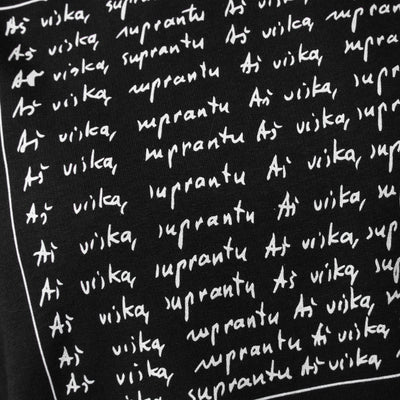 Aš viską, suprantu
Aš viską, suprantu Aš viską,
Aš viską, suprantu Aš viską, suprantu
Aš viską, suprantu Aš viską, suprantu
Aš viską, suprantu Aš viską, suprantu
Aš viską, suprantu Aš viską, sup
Aš viską, suprantu Aš viską, sup
Aš viską, suprantu Aš viską, sup
Aš viską, suprantu Aš viską, sup
Aš viską, suprantu Aš viską, sup
Aš viską, suprantu Aš viską, sup
Aš viską, suprantu Aš viską,
Aš viską, suprantu Aš viską,